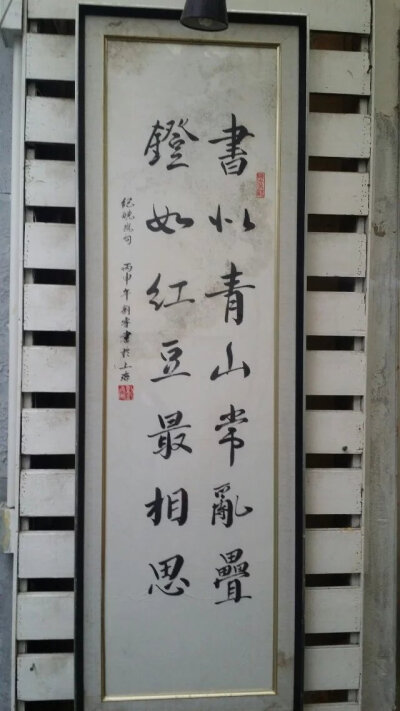 書似青山常亂疊
鐙如紅豆最相思
紀曉嵐句 丙申年 書於上海